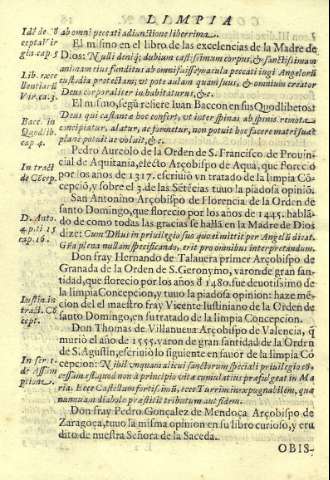 LIMPIA
ab omni peccati adiunctione liberrima.
El mismo en el libro de las excelencias de la Madre de
Dios: Nulli deniq; dubium castissimum corpus, & sanctissimam
animam eius funditus ab omni fuisse macula peccati iugi Angelorū
custodia protectam; vt pote aulam quam suus, & omnium creator
Deus corporaliter in habitaturus, &c.
El mismo, segū refiere Iuan Baccon en sus Quodlibetos:
Deus qui castanea hoc confert, vt inter spinas ab spinis remota
concipiatur, alatur, ac formetur, non potuit hoc facere matri suæ
plane potuit ac voluit, &c.
Pedro Aureolo de la Orden de S. Francisco de Prouin-
cial de Aquitania, electo Arçobispo de Aqua, que florecio
por los años de 1317. escriuio vn tratado de la limpia Cō-
cepciō, y sobre el 3. de las Sētēcias tuuo la piadosa opiniō.
San Antonino Arçobispo de Florencia de la Orden de
santo Domingo, que florecio por los años de 1445. hablā-
do de como todas las gracias se hallā en la Madre de Dios
dize: Cum Diui in priuilegio suo quæ
Gratia plena nullam specificando, erit pro omnibus interpretandum.
Don fray Hernando de Talauera primer Arçobispo de
Granada de la Orden de S. Geronymo, varon de gran san-
tidad, que florecio por los años d 1480. fue deuotissimo de
la limpia Concepcion, y tuuo la piadosa opinion: haze mē-
cion del el maestro fray Vicente Iustiniano de la Orden de
santo Domingo, en su tratado de la limpia Concepcion.
Don Thomas de Villanueua Arçobispo de Valencia, q̄
murió el año de 1555. varon de gran santidad de la Ordē
de S. Agustin, escriuiò lo siguiente en fauor de la limpia Cō
cepcion: Nihil vnquam alicui sanctorum speciali priuilegio cō-
cessum est, quod non à principio vitæ cumulatius præfulgeat in Ma
ria. Ecce Castellum fortissimū, ecce Turrim inexpugnabilem, quæ
nunquam diabolo præstitit tributum aut fidem.
Don fray Pedro Gonçalez de Mendoça Arçobispo de
Zaragoça, tuuo la misma opinion en su libro curioso, y eru
dito de nuestra Señora de la Saceda.
OBIS-
Idē de
ceptaVir
gia cap. 3
Lib. exce
llentiarū
Vir. ca. 3.
Bacc. in
Quodlib.
cap. 4.
In tract
de Cōcep.
D. Anto.
4. p. ti. 15
cap. 16.
Iustin. in
tract. Cō
cept.
In ser. 1.
de Assūm
ptione.